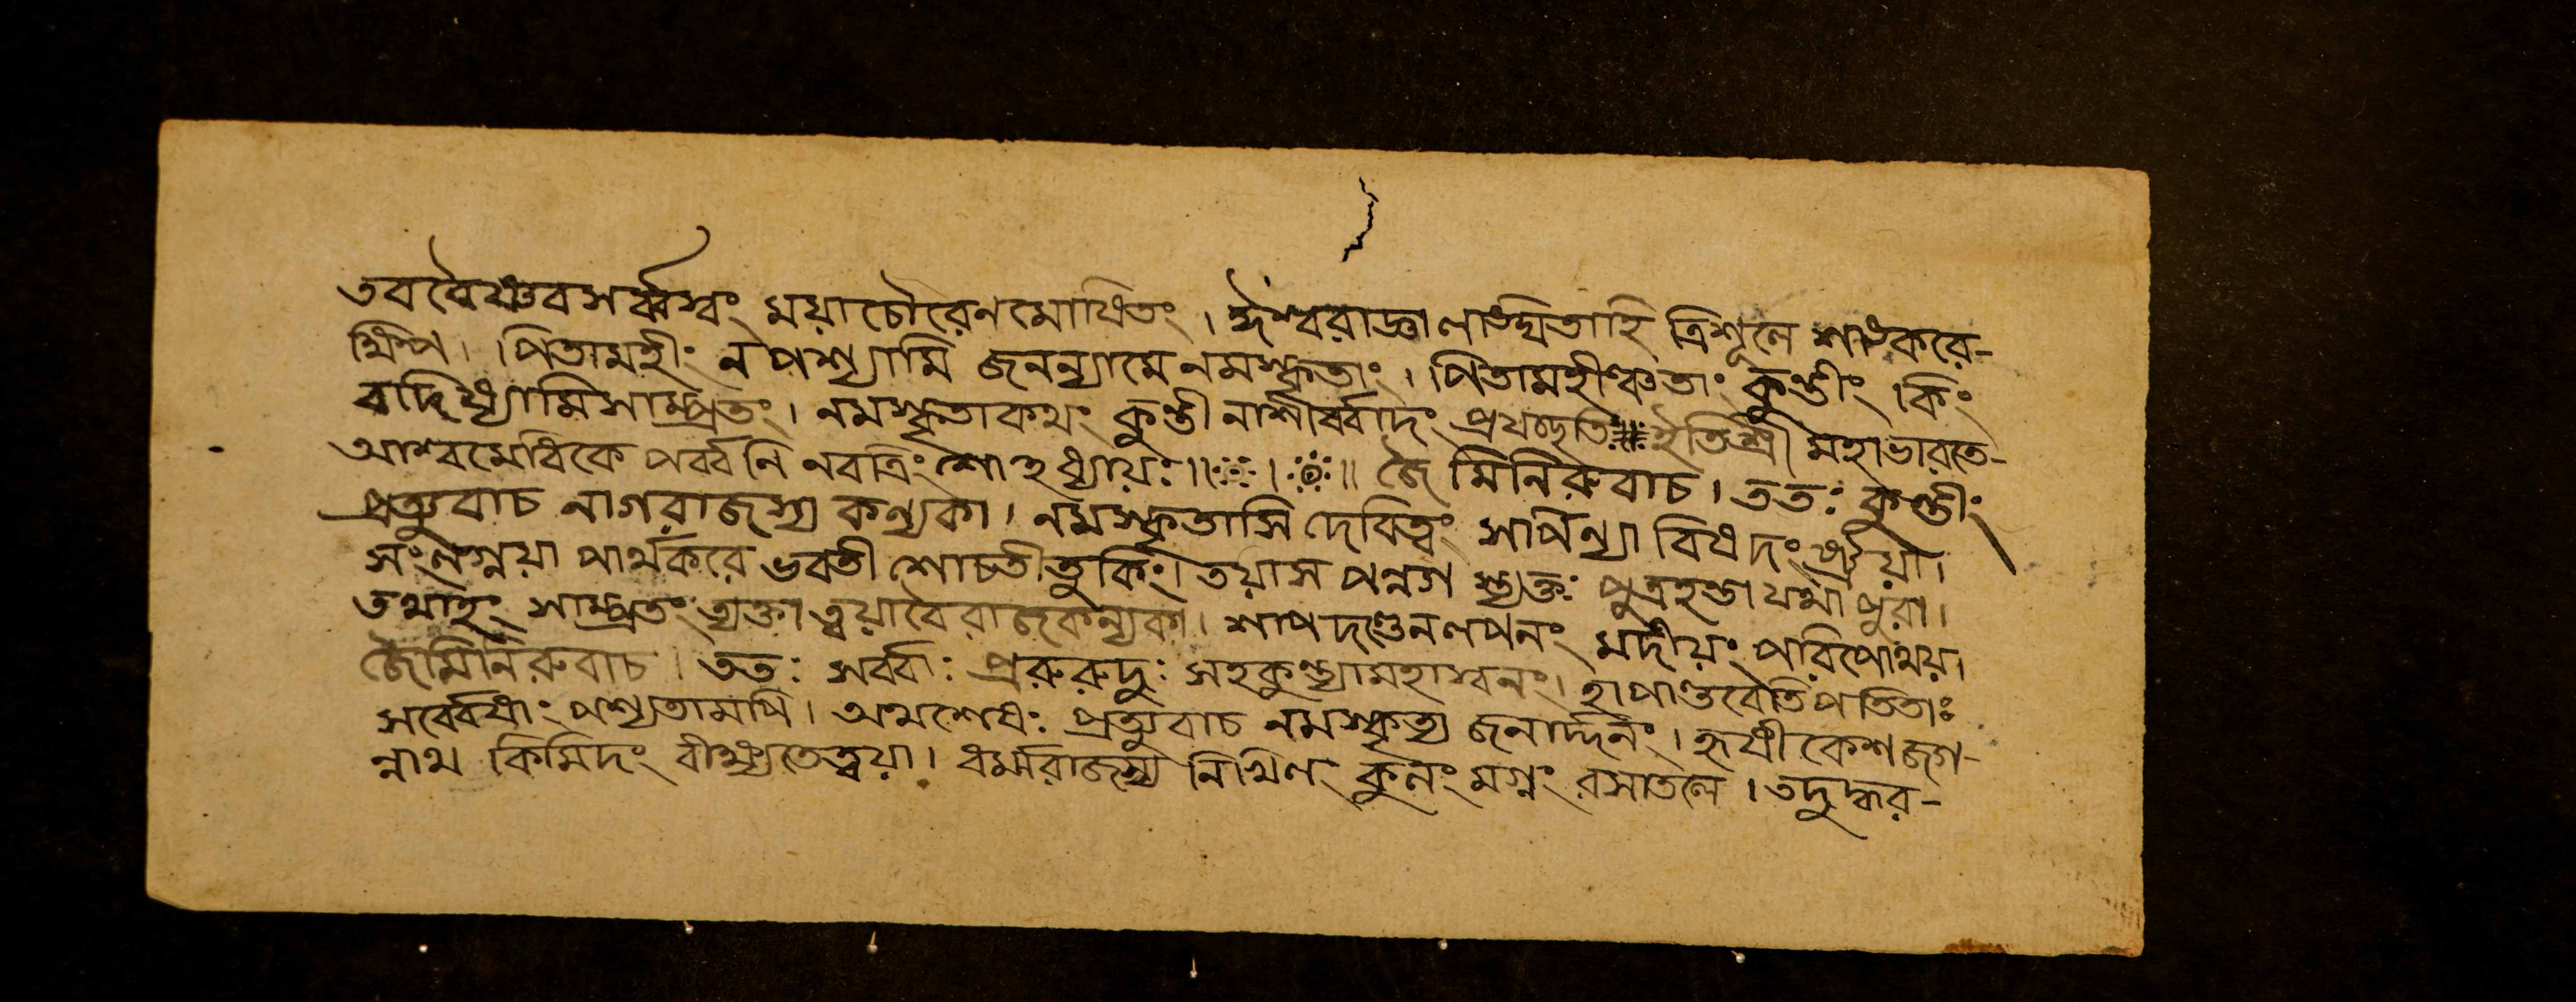 তব বৈষ্ণব সর্ব্বস্বং ময়া চৌরেন মোষিতং । ঈশ্বরাজ্ঞা লঙ্ঘিতাহি ত্রিশূলে শঙ্করে-
ক্ষিপ । পিতামহীং ন পশ্যামি জনন্যামে নমস্কৃতাং । পিতামহীঞ্চতাং কুন্তীং কিং
বাদিষ্যামি সাম্প্রতং । নমস্কৃতা কথং কুন্তী নাশীর্ব্বাদং প্রযচ্ছতি॥ ইতি শ্রী মহাভারতে-
আশ্বমেধিকে পর্ব্বনি নবত্রিংশোঽধ্যায়ঃ ॥ জৈমিনিরুবাচ । ততঃ কুন্তীং
প্রত্যুবাচ নাগরাজস্য কন্যকা । নমস্কৃতাসি দেবিত্বং সর্পিন্যা বিষদং
সংলগ্নয়া পার্থকরে ভবতী শোচতী তু কিং । তয়াস পন্নগ স্ত্যক্তঃ পুত্রহন্তা যথা পুরা ।
তথাহং সাম্প্রতং ত্যক্তা ত্বয়াবৈ রাজকন্যকা । শাপদণ্ডেন লপনং মদীয়ং পরিপোথয় ।
জৈমিনিরুবাচ । ততঃ সর্ব্বাঃ প্ররুরুদুঃ সহকুন্ত্যা মহাস্বনং । হা পাণ্ডবেতি পতিতাঃ
সর্ব্বেষাং পশ্যতামপি । অথশেষঃ প্রত্যুবাচ নমস্কৃত্য জনার্দ্দনং । হৃষীকেশ জগ-
ন্নাথ কিমিদং বীক্ষ্যতে ত্বয়া । ধর্ম্মরাজস্য নিখিলং কুলং মগ্নং রসাতলে । তদুদ্ধর-